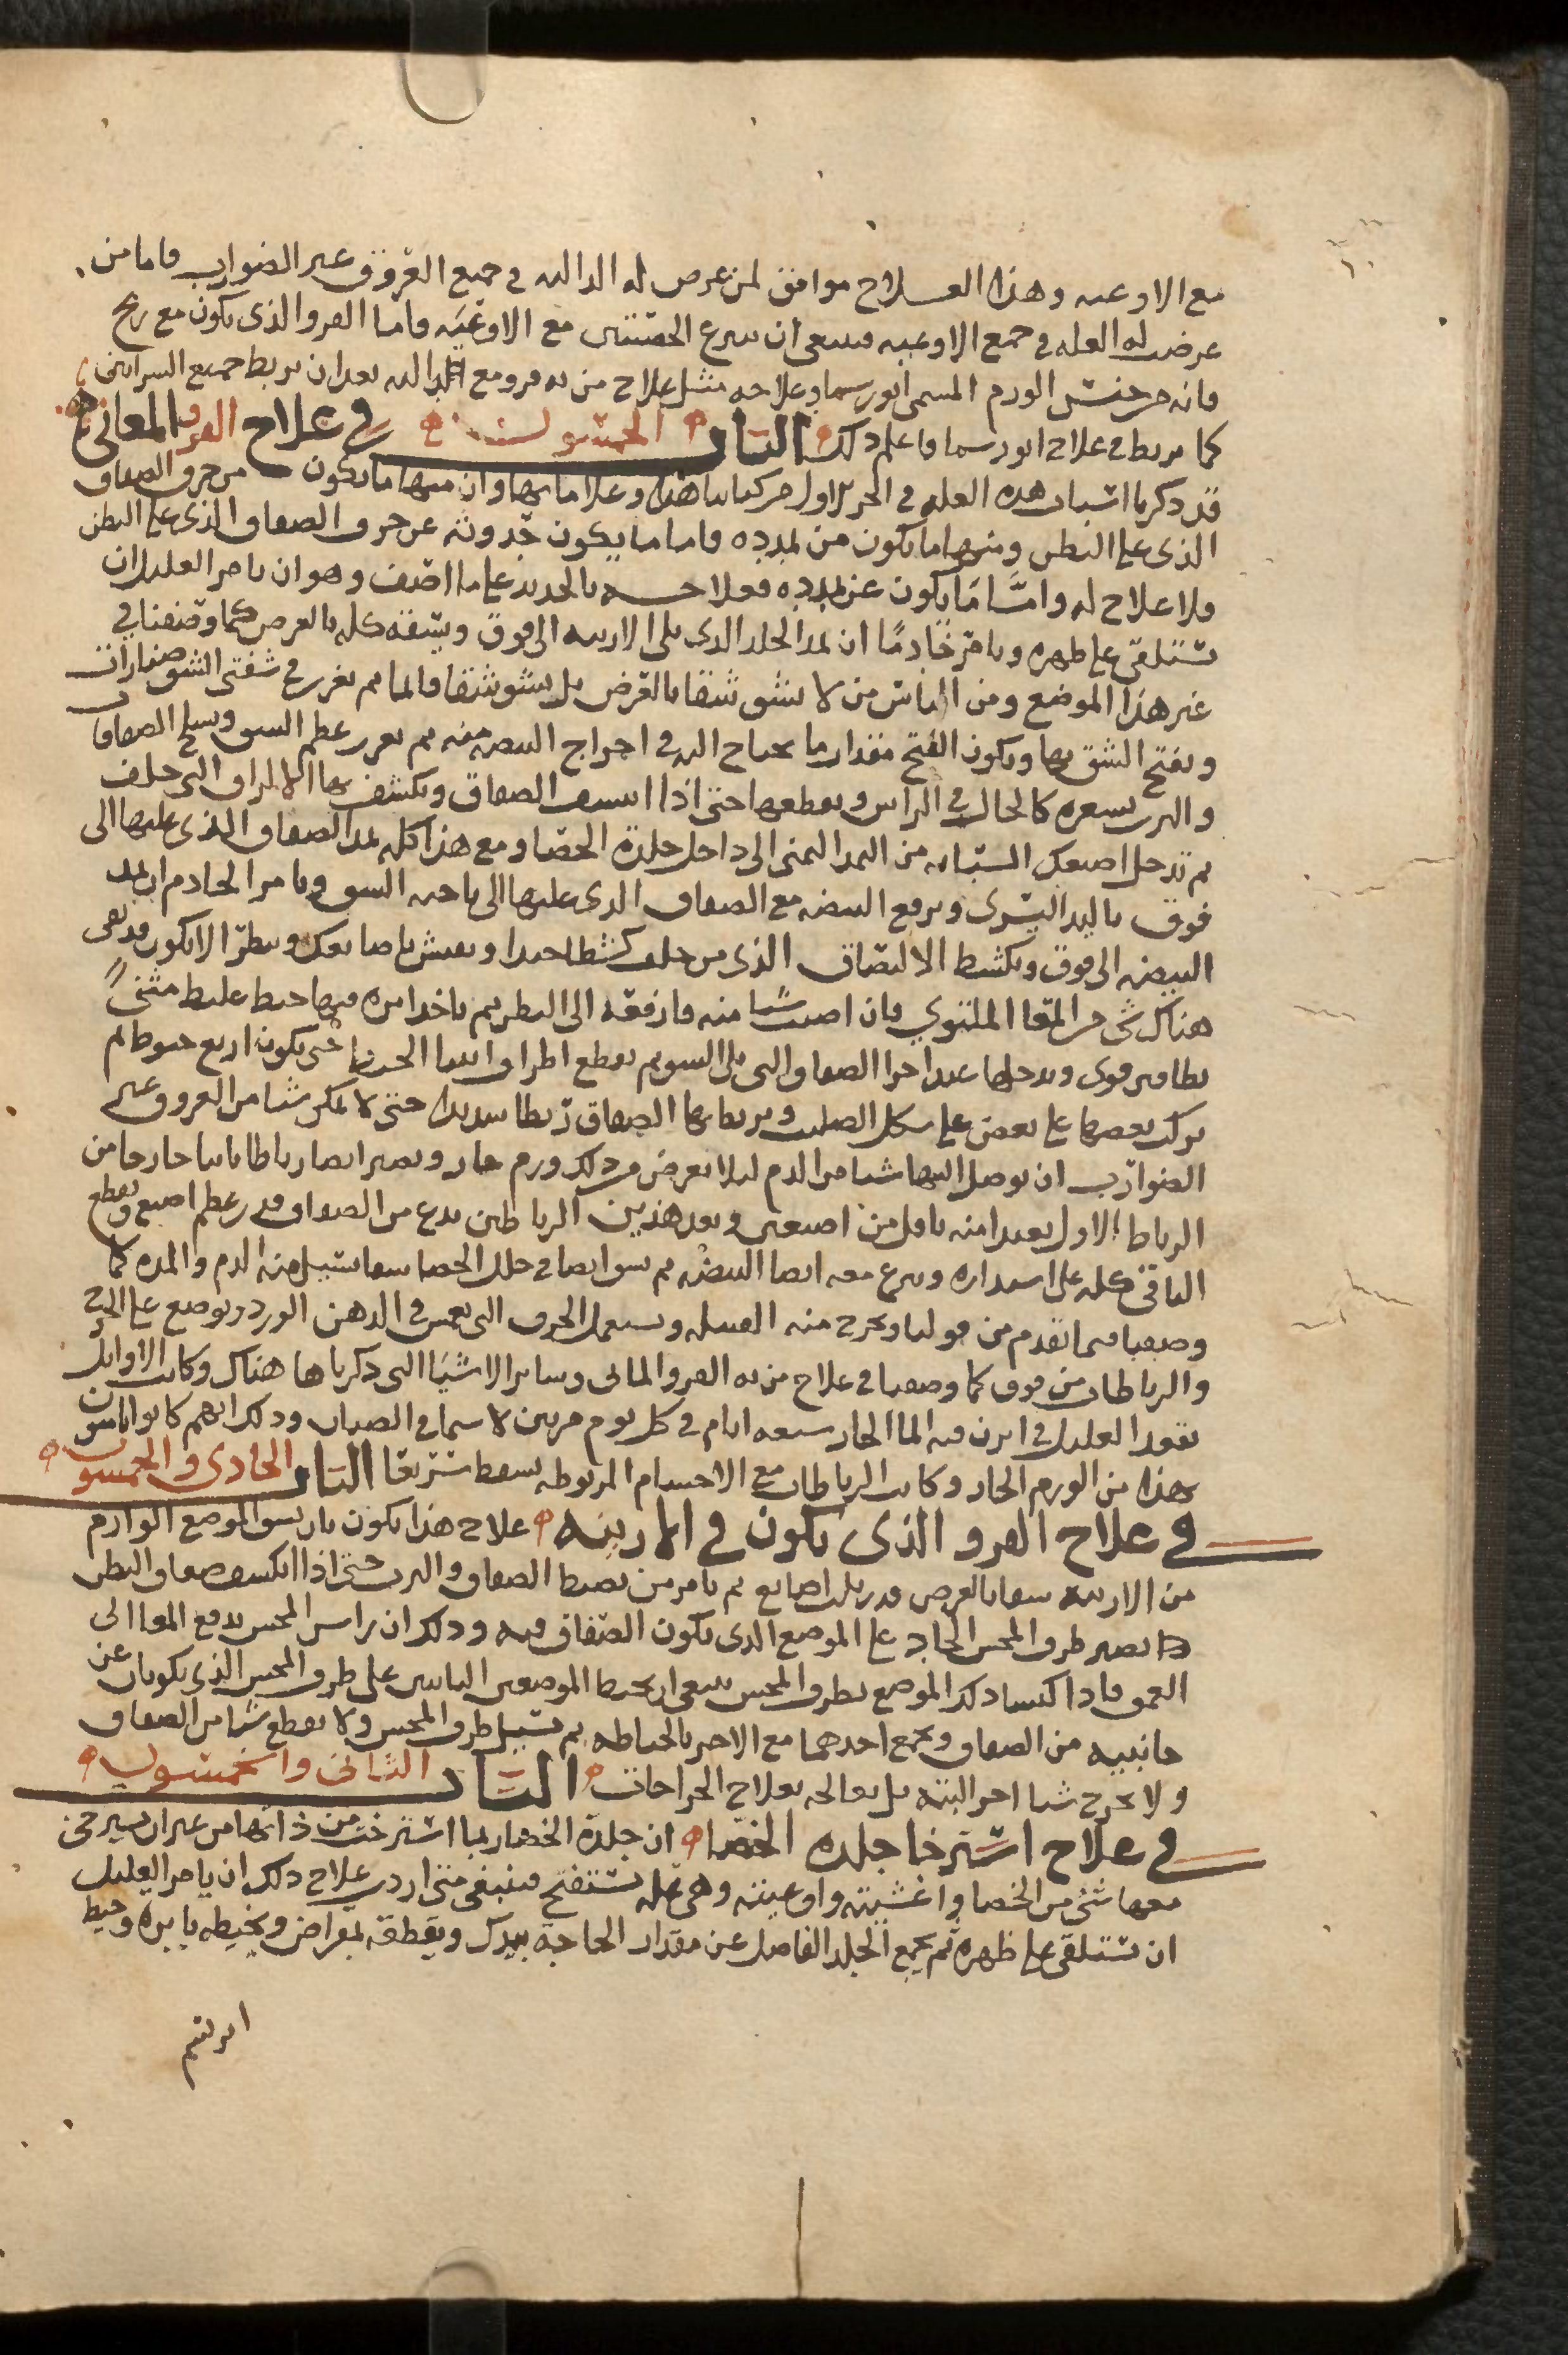 مع الاوعيه وهذا العـلاج موافق لمن عرض له الداليه في جميع العروق غير الضوارب فاما من
عرضت له العله في جميع الاوعيه فينبغي ان ينزع الخصيتين مع الاوعيه فاما الفرو الذي يكون مع ريح
فانه من جنس الورم المسمى ابورسما وعلاجه مثل علاج من به فرو مع الداليه بعد ان يربط جميع الشرايين
كما يربط في علاج ابورسما فاعلم ذلك الباب الخمسون في علاج الفرو المعائي
قد ذكرنا اسباب هذه العله في الجز الاول من كتابنا هذا وعلاماتها وان منها ما يكون من خرق الصفاق
الذي على البطن ومنها ما يكون من تمدده فاما ما يكون حدوثه عن خرق الصفاق الذي على البطن
فلا علاج له واما ما يكون عن تمدده فعلاجـه بالحديد على ما اصف وهو ان تامر العليل ان
يستلقي على ظهره وتامر خادمًا ان يمد الجلد الذي يلي الاربيه الى فوق وتشقه كله بالعرض كما وصفنا في
غير هذا الموضع ومن الناس من لا يشق شقا بالعرض بل يشق شقا قائما ثم يغرز في شفتي الشق صنارات
ويفتح الشق بها ويكون الفتح مقدار ما يحتاج اليه في اخراج البيضه منه ثم يغرز عظم الشق وسلخ الصفاقات
والثرب بشعره كالحال في الراس ويقطعها حتى اذا انكشف الصفاق وتكشف بها المراق التي خلف
ثم تدخل اصبعك السبابه من اليد اليمنى الى داخل جلدة الخصا ومع هذا كله تمد الصفاق الذي عليها الى
فوق باليد اليسرى وترفع البيضه مع الصفاق الذي عليها الى ناحيه الشق وتامر الخادم ان يمد
البيضه الى فوق وتكشط الالتصاق الذي من خلف كشطا جيدا وتفتش باصابعك وتنظر الا يكون قد بقي
هناك شي من المعا الملتوي فان اصبت شيا منه فادفعه الى البطن ثم تاخذ ابره فيها خيط غليظ مثنيًّ
بطاقين قوي وتدخلها عند اخر الصفاق التي يلي الشق ثم يقطع اطراف اثنا الخيط حتى يكون اربع خيوط ثم
تركب بعضها على بعض على شكل الصليب وتربط بها الصفاق ربطا شديدا حتى لا يمكن شيا من العروق غير
الضوارب ان توصل اليها شيا من الدم ليلا يعرض من ذلك ورم حار وتصير ايضا رباطا ثانيا خارجا من
الرباط الاول بعيدا منه باقل من اصبعين وبعد هذين الرباطين تدع من الصفاق قدر عظم اصبع وتقطع
الباقي كله على استداره وتنزع معه ايضا البيضه ثم تشق ايضا في جلد الخصا شقا يسيل منه الدم والمده كما
وصفنا فيما تقدم من قولنا وتخرج منه الفتيله وتستعمل الخرق التي تغمس في الدهن الورد وتوضع على الجرح
والرباطات من فوق كما وصفنا في علاج من به الفرو المائي وساير الاشيا التي ذكرناها هناك وكانت الاوايل
تقعد العليل في ابزن فيه الما الحار سبعه ايام في كل يوم مرتين لا سيما في الصبيان وذلك انهم كانوا يامنون
بهذا من الورم الحار وكانت الرباطات مع الاجسام المربوطه تسقط سريعا الباب الحادي والخمسون
في علاج الفرو الذي يكون في الاربيه علاج هذا يكون بان يشق الموضع الوارم
من الاربيه شقا بالعرض قدر ثلث اصابع ثم تامر من يضبط الصفاق والثرب حتى اذا انكشف صفاق البطن
تصير طرف المجس الحاد على الموضع الذي يكون الصفاق فيه وذلك ان راس المجس يدفع المعا الى
العمق فاذا كبست ذلك الموضع بطرف المجس ينبغي ان تخيط الموضعين الناتيين على طرف المجس الذي يكونان عن
جانبيه من الصفاق وتجمع احدهما مع الاخر بالخياطه ثم تسيل طرف المجس ولا تقطع شيا من الصفاق
ولا تخرج شيا اخر البته بل تعالجه بعلاج الجراحات الباب الثاني والخمسون
في علاج استرخا جلده الخصا ان جلدة الخصا ربما استرخت من ذاتها من غير ان يسترخي
معها شي من الخصا واغشيته واوعيته وهي عله تستقبح فينبغي متى اردت علاج ذلك ان يامر العليل
ان يستلقي على ظهره ثم تجمع الجلد الفاضل عن مقدار الحاجة بيدك وتقطعه بمقراض وتخيطه بابره وخيط
ابريسم